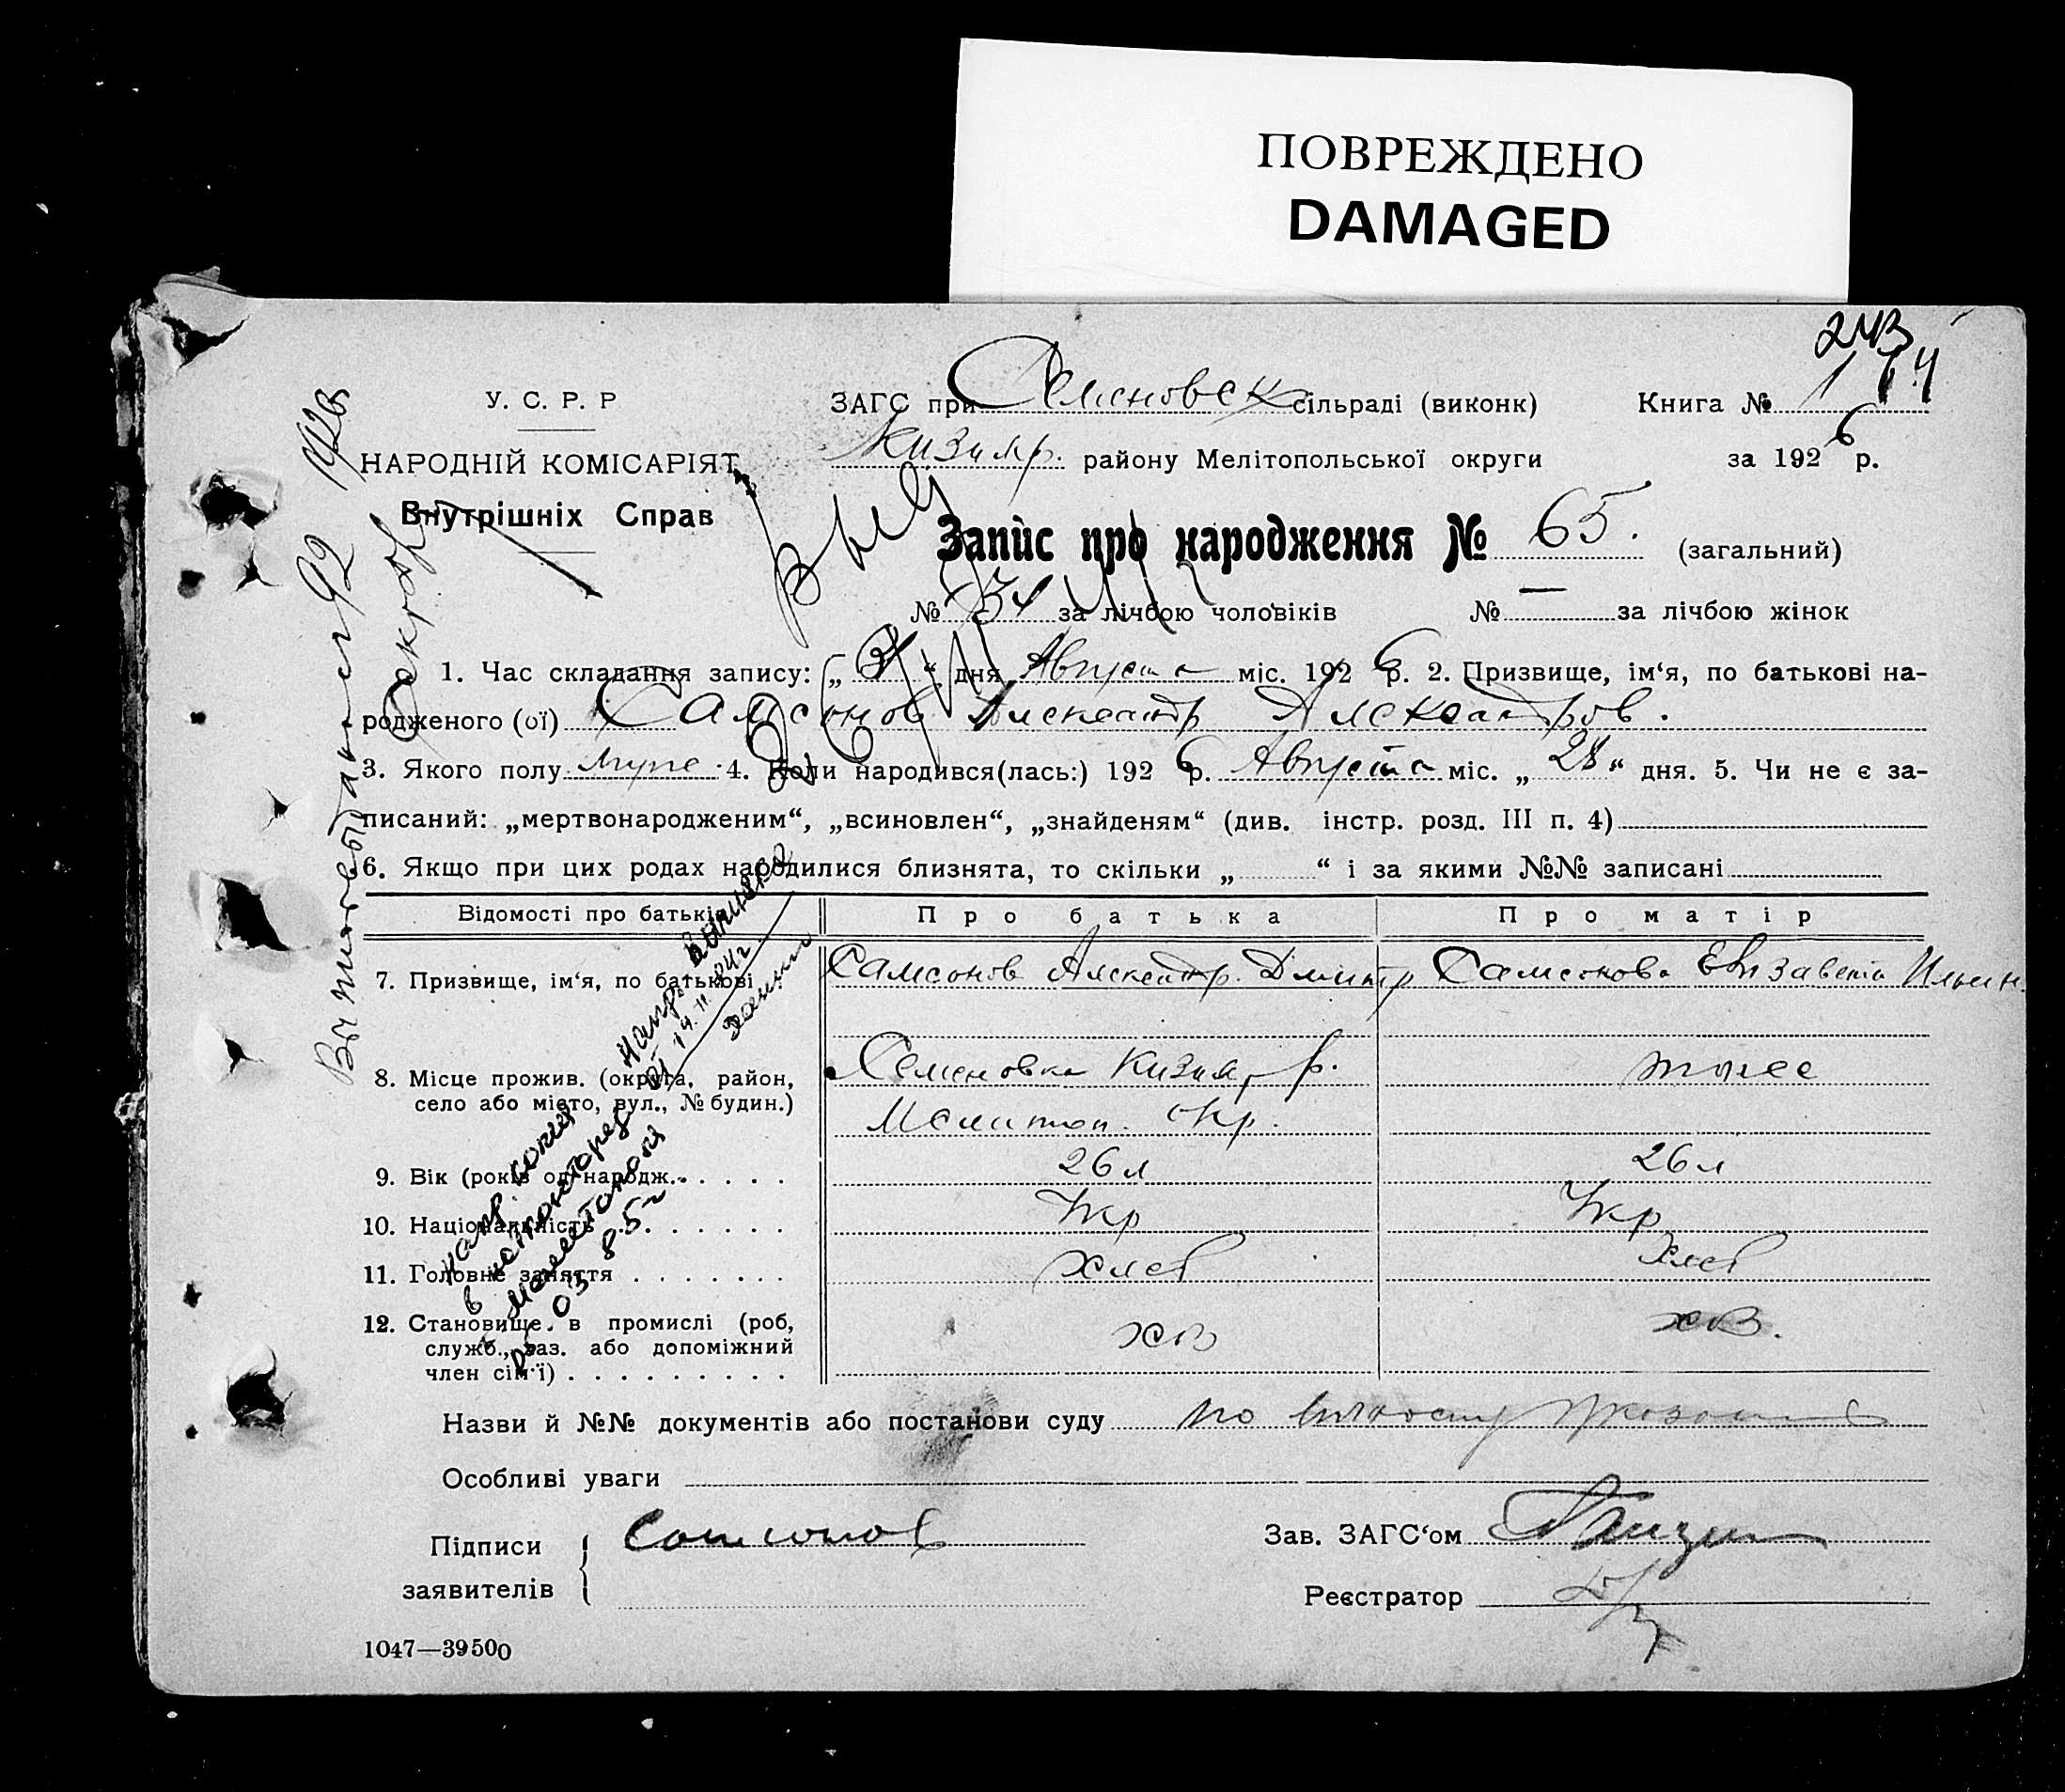 ПОВРЕЖДЕНО
DAMAGED
243
У. С. Р. Р
ЗАГС при Семеновск сільраді (виконк)
Книга № 1
НАРОДНІЙ КОМІСАРІЯТ
Кизияр. району Мелітопольської округи
за 1926 р.
Внутрішніх Справ
Запис про народження № 65. (загальний)
№ 34 за лічбою чоловіків № — за лічбою жінок
1. Час складання запису: „31“ дня Августа міс. 1926 р. 2. Призвище, ім‘я, по батькові на-
родженого (ої) Самсонов Александр Александров.
3. Якого полу муже 4. Коли народився(лась:) 1926 р. Августа міс. „28“ дня. 5. Чи не є за-
писаний: „мертвонародженим“, „всиновлен“, „знайденям“ (див. інстр. розд. III п. 4)
6. Якщо при цих родах народилися близнята, то скільки „ “ і за якими №№ записані
Відомості про батьків
Про батька
Про матір
7. Призвище, ім‘я, по батькові
Самсонов Александр Дмитр
Самсонова Елизавета Ильин.
8. Місце прожив. (округа, район,
село або місто, вул., № будин.)
Семеновка Кизияр р.
Мелитоп. окр.
тоже
9. Вік (років од народж.
26 л
26 л
10. Національність
Укр
Укр
11. Головне заняття
хлеб
хлеб
12. Становище в промислі (роб,
служб., хаз. або допоміжний
член сім‘ї)
хоз
хоз.
Назви й №№ документів або постанови суду по
Особливі уваги
Підписи
заявителів
Самсонов
Зав. ЗАГС‘ом
Реєстратор
1047—39500